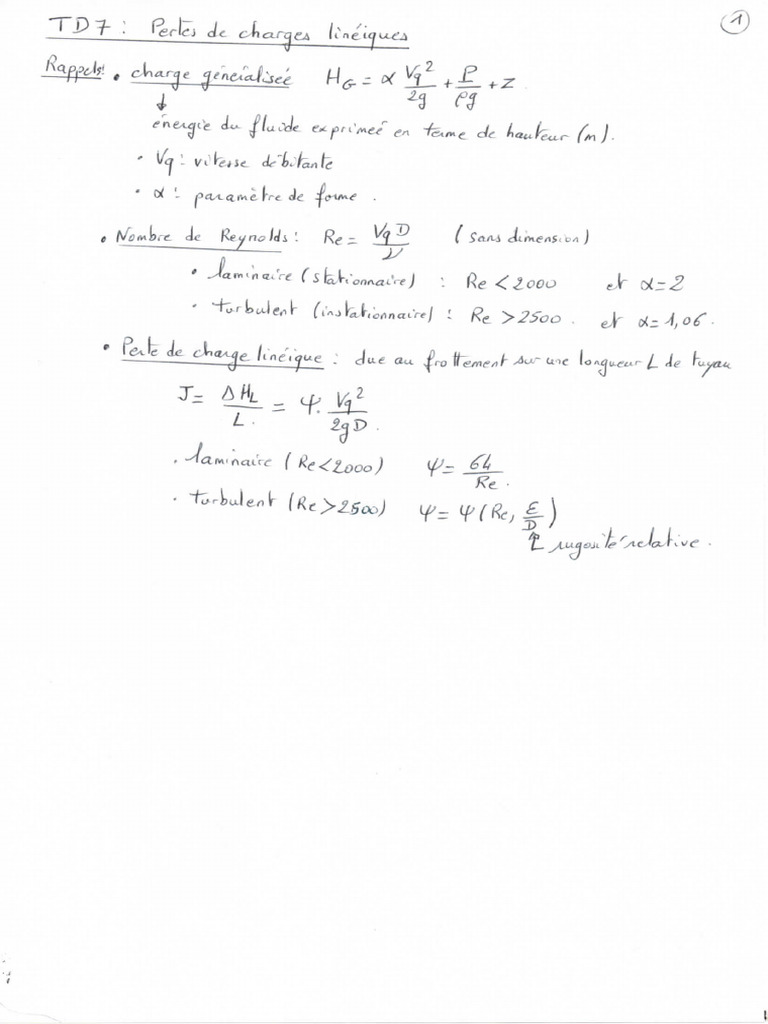 TD7 : Pertes de charges linéiques
1
Rappels: • charge généralisée H_G = α Vq²/2g + P/ρg + Z
↓
énergie du fluide exprimée en terme de hauteur (m).
• Vq : vitesse débitante
• α : paramètre de forme.
• Nombre de Reynolds : Re = VqD/ν (sans dimension)
• laminaire (stationnaire) : Re < 2000 et α=2
• turbulent (instationnaire) : Re > 2500. et α=1,06.
• Perte de charge linéique : due au frottement sur une longueur L de tuyau
J = ΔH_L/L = Ψ. Vq²/2gD.
• laminaire (Re<2000) Ψ = 64/Re.
• turbulent (Re>2500) Ψ = Ψ(Re, ε/D)
↑ rugosité relative.